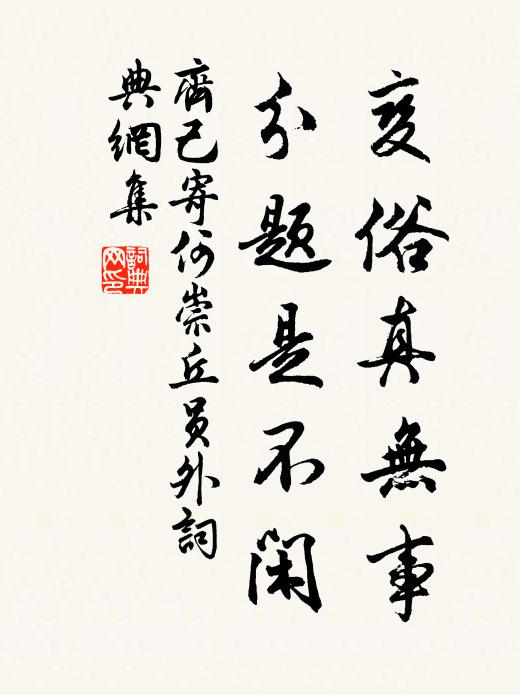 变俗真無事
分題是不闲
齊己寄何崇丘员外詞
典網集
詞典
网印